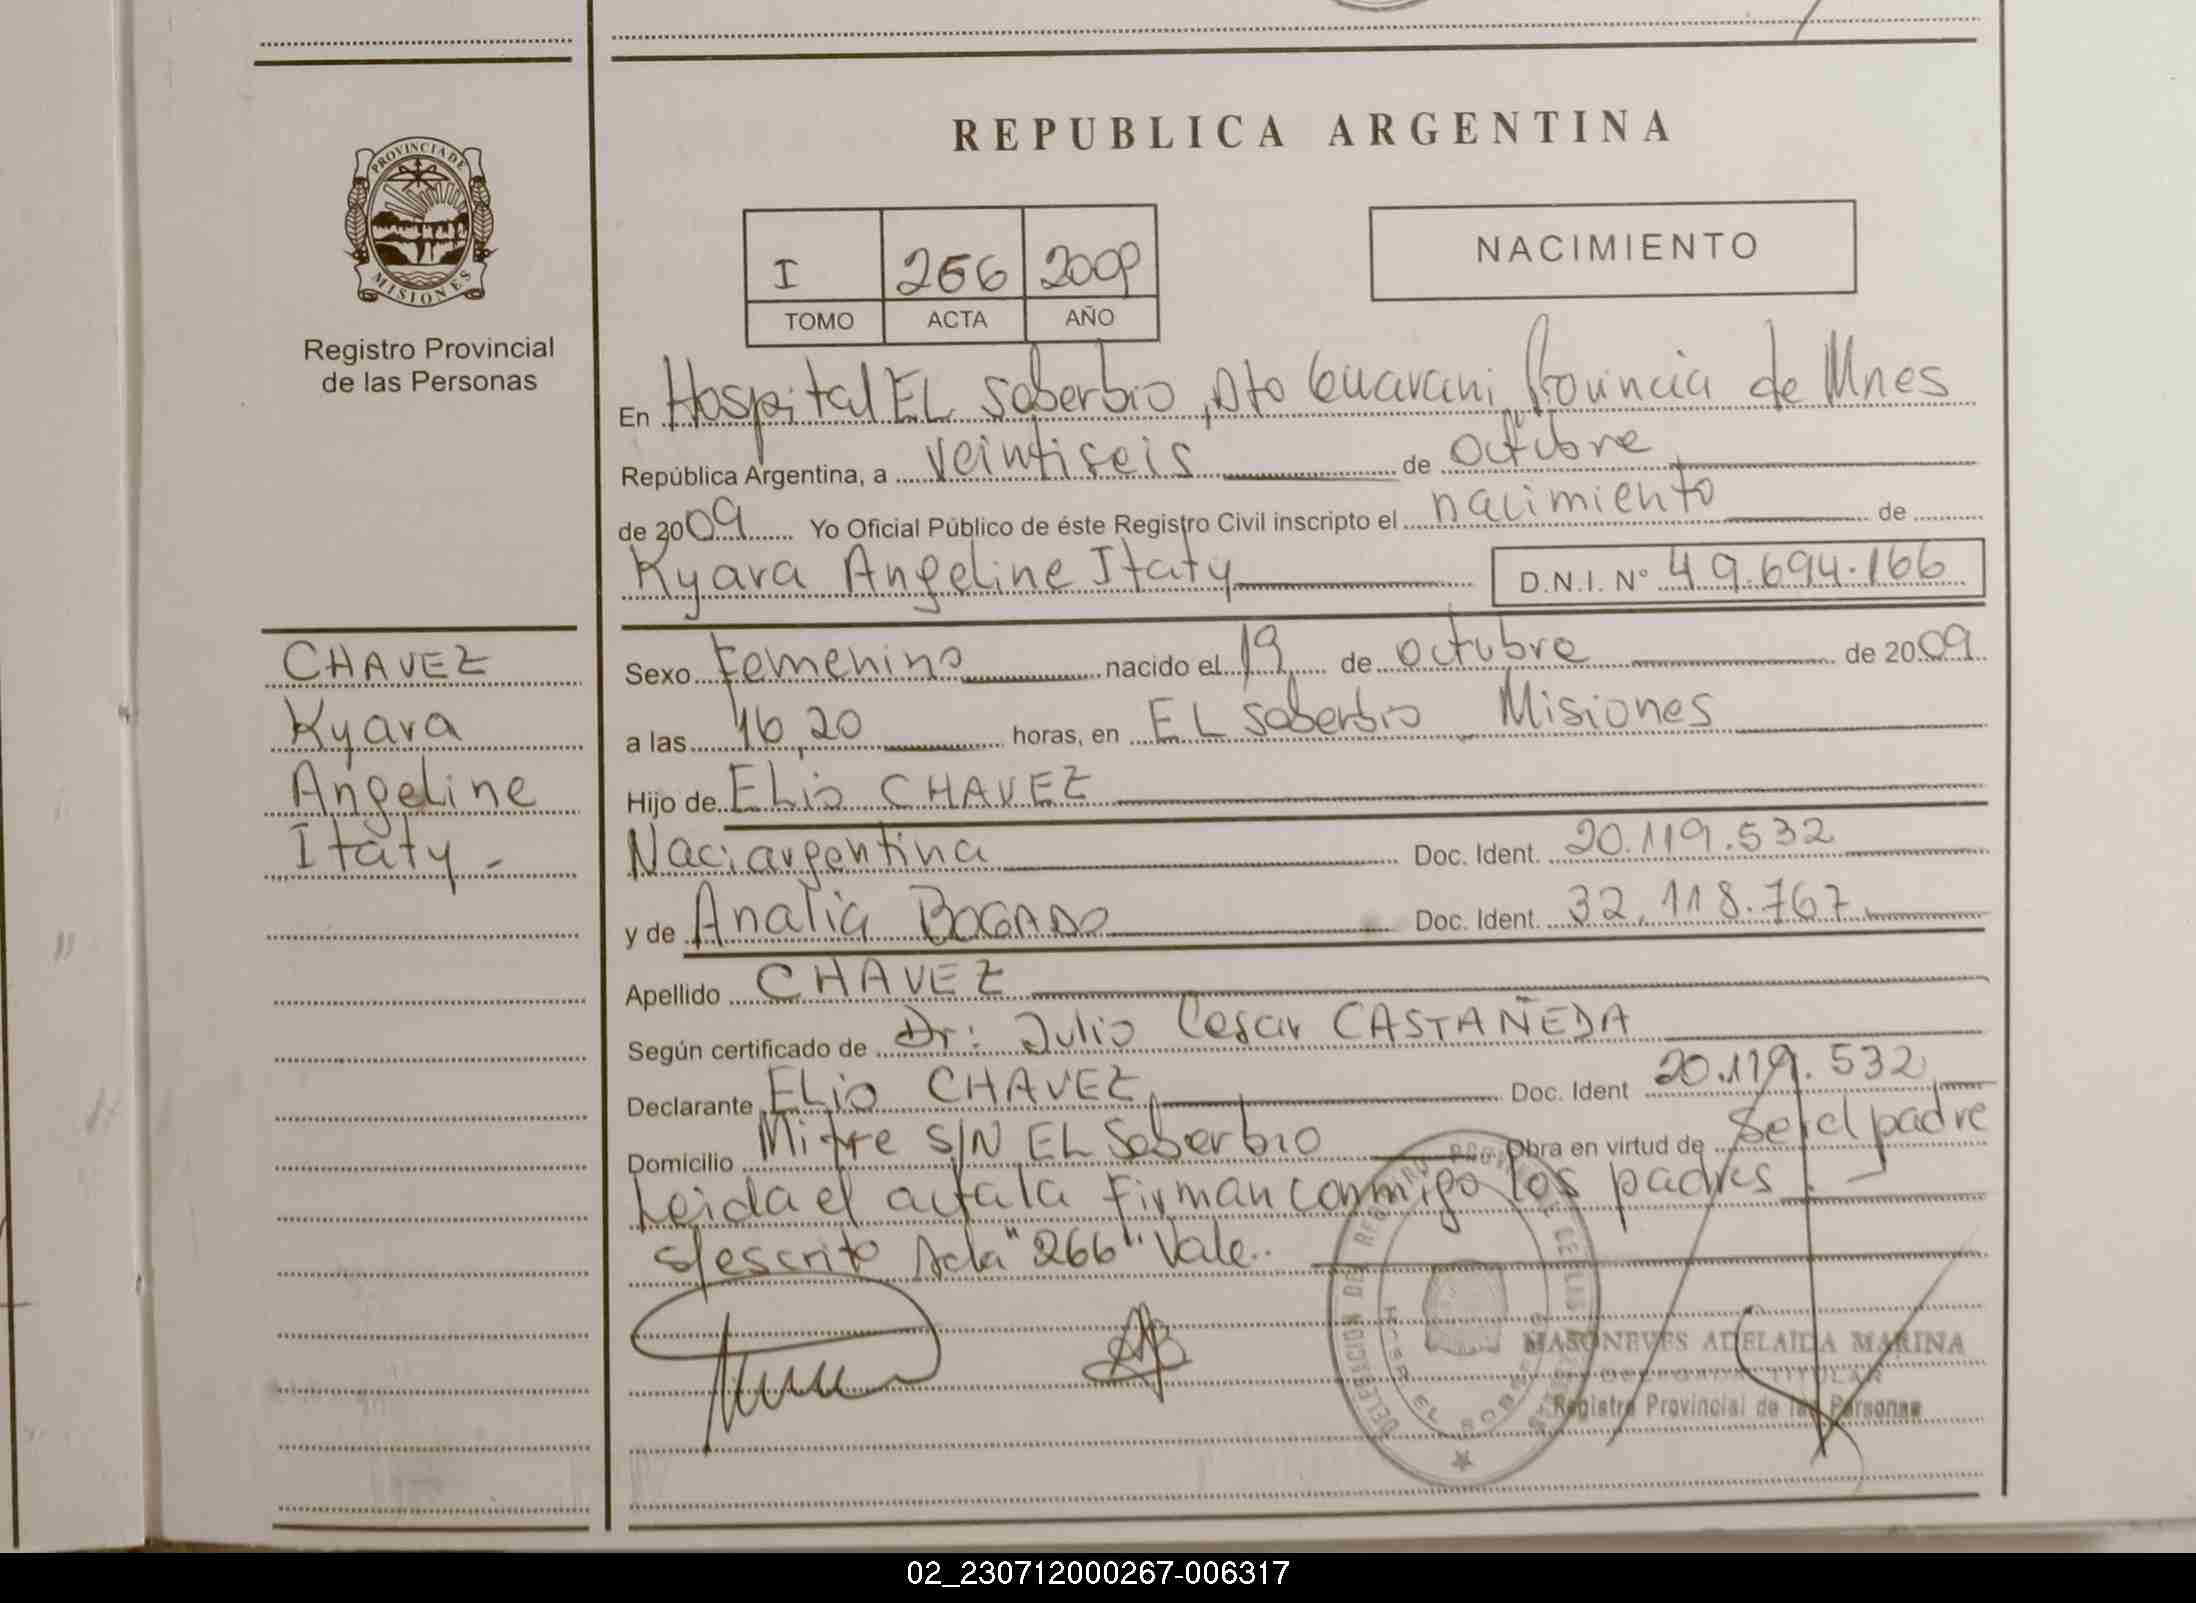 REPUBLICA ARGENTINA
PROVINCIA DE
MISIONES
Registro Provincial
de las Personas
I 266 2009
TOMO ACTA AÑO
NACIMIENTO
En Hospital EL Soberbio, Dto Guarani Provincia de Mnes
República Argentina, a veintiseis de octubre
de 2009 Yo Oficial Público de éste Registro Civil inscripto el nacimiento de
Kyara Angeline Itaty D.N.I. N° 49.694.166
CHAVEZ
Kyara
Angeline
Itaty -
Sexo Femenino nacido el 19 de octubre de 2009
a las 16,20 horas, en EL Soberbio Misiones
Hijo de ELio CHAVEZ
Naci argentina Doc. Ident. 20.119.532
y de Analia BOGADO Doc. Ident. 32.118.767
Apellido CHAVEZ
Según certificado de Dr: Julio Cesar CASTAÑEDA
Declarante ELio CHAVEZ Doc. Ident 20.119.532
Domicilio Mitre S/N EL Soberbio Obra en virtud de ser el padre
Leida el acta la Firman conmigo los padres.-
s/escrito Acta "266" Vale.
MASONEVES ADELAIDA MARINA
TITULAR
Registro Provincial de las Personas
02_230712000267-006317